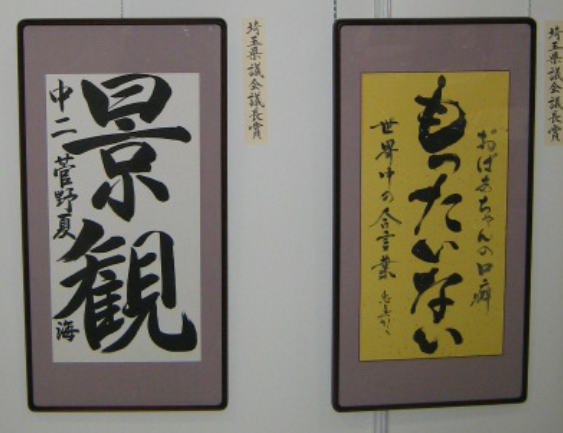 景観
中二 菅野夏海
埼玉県議会議長賞
おばあちゃんの口癖
もったいない
世界中の合言葉
埼玉県議会議長賞